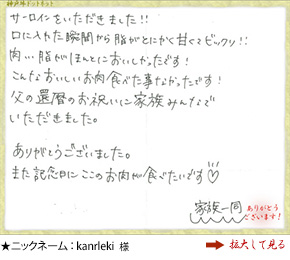 神戸牛ドットネット
サーロインをいただきました!!
口に入れた瞬間から脂がとにかく甘くてビックリ!!
肉、、脂がほんとにおいしかったです!
こんなおいしいお肉食べた事なかったです!
父の還暦のお祝いに家族みんなで
いただきました。
ありがとうございました。
また記念日にここのお肉が食べたいです♡
家族一同
ありがとう
ございます!
★ニックネーム：kanrleki 様
拡大して見る